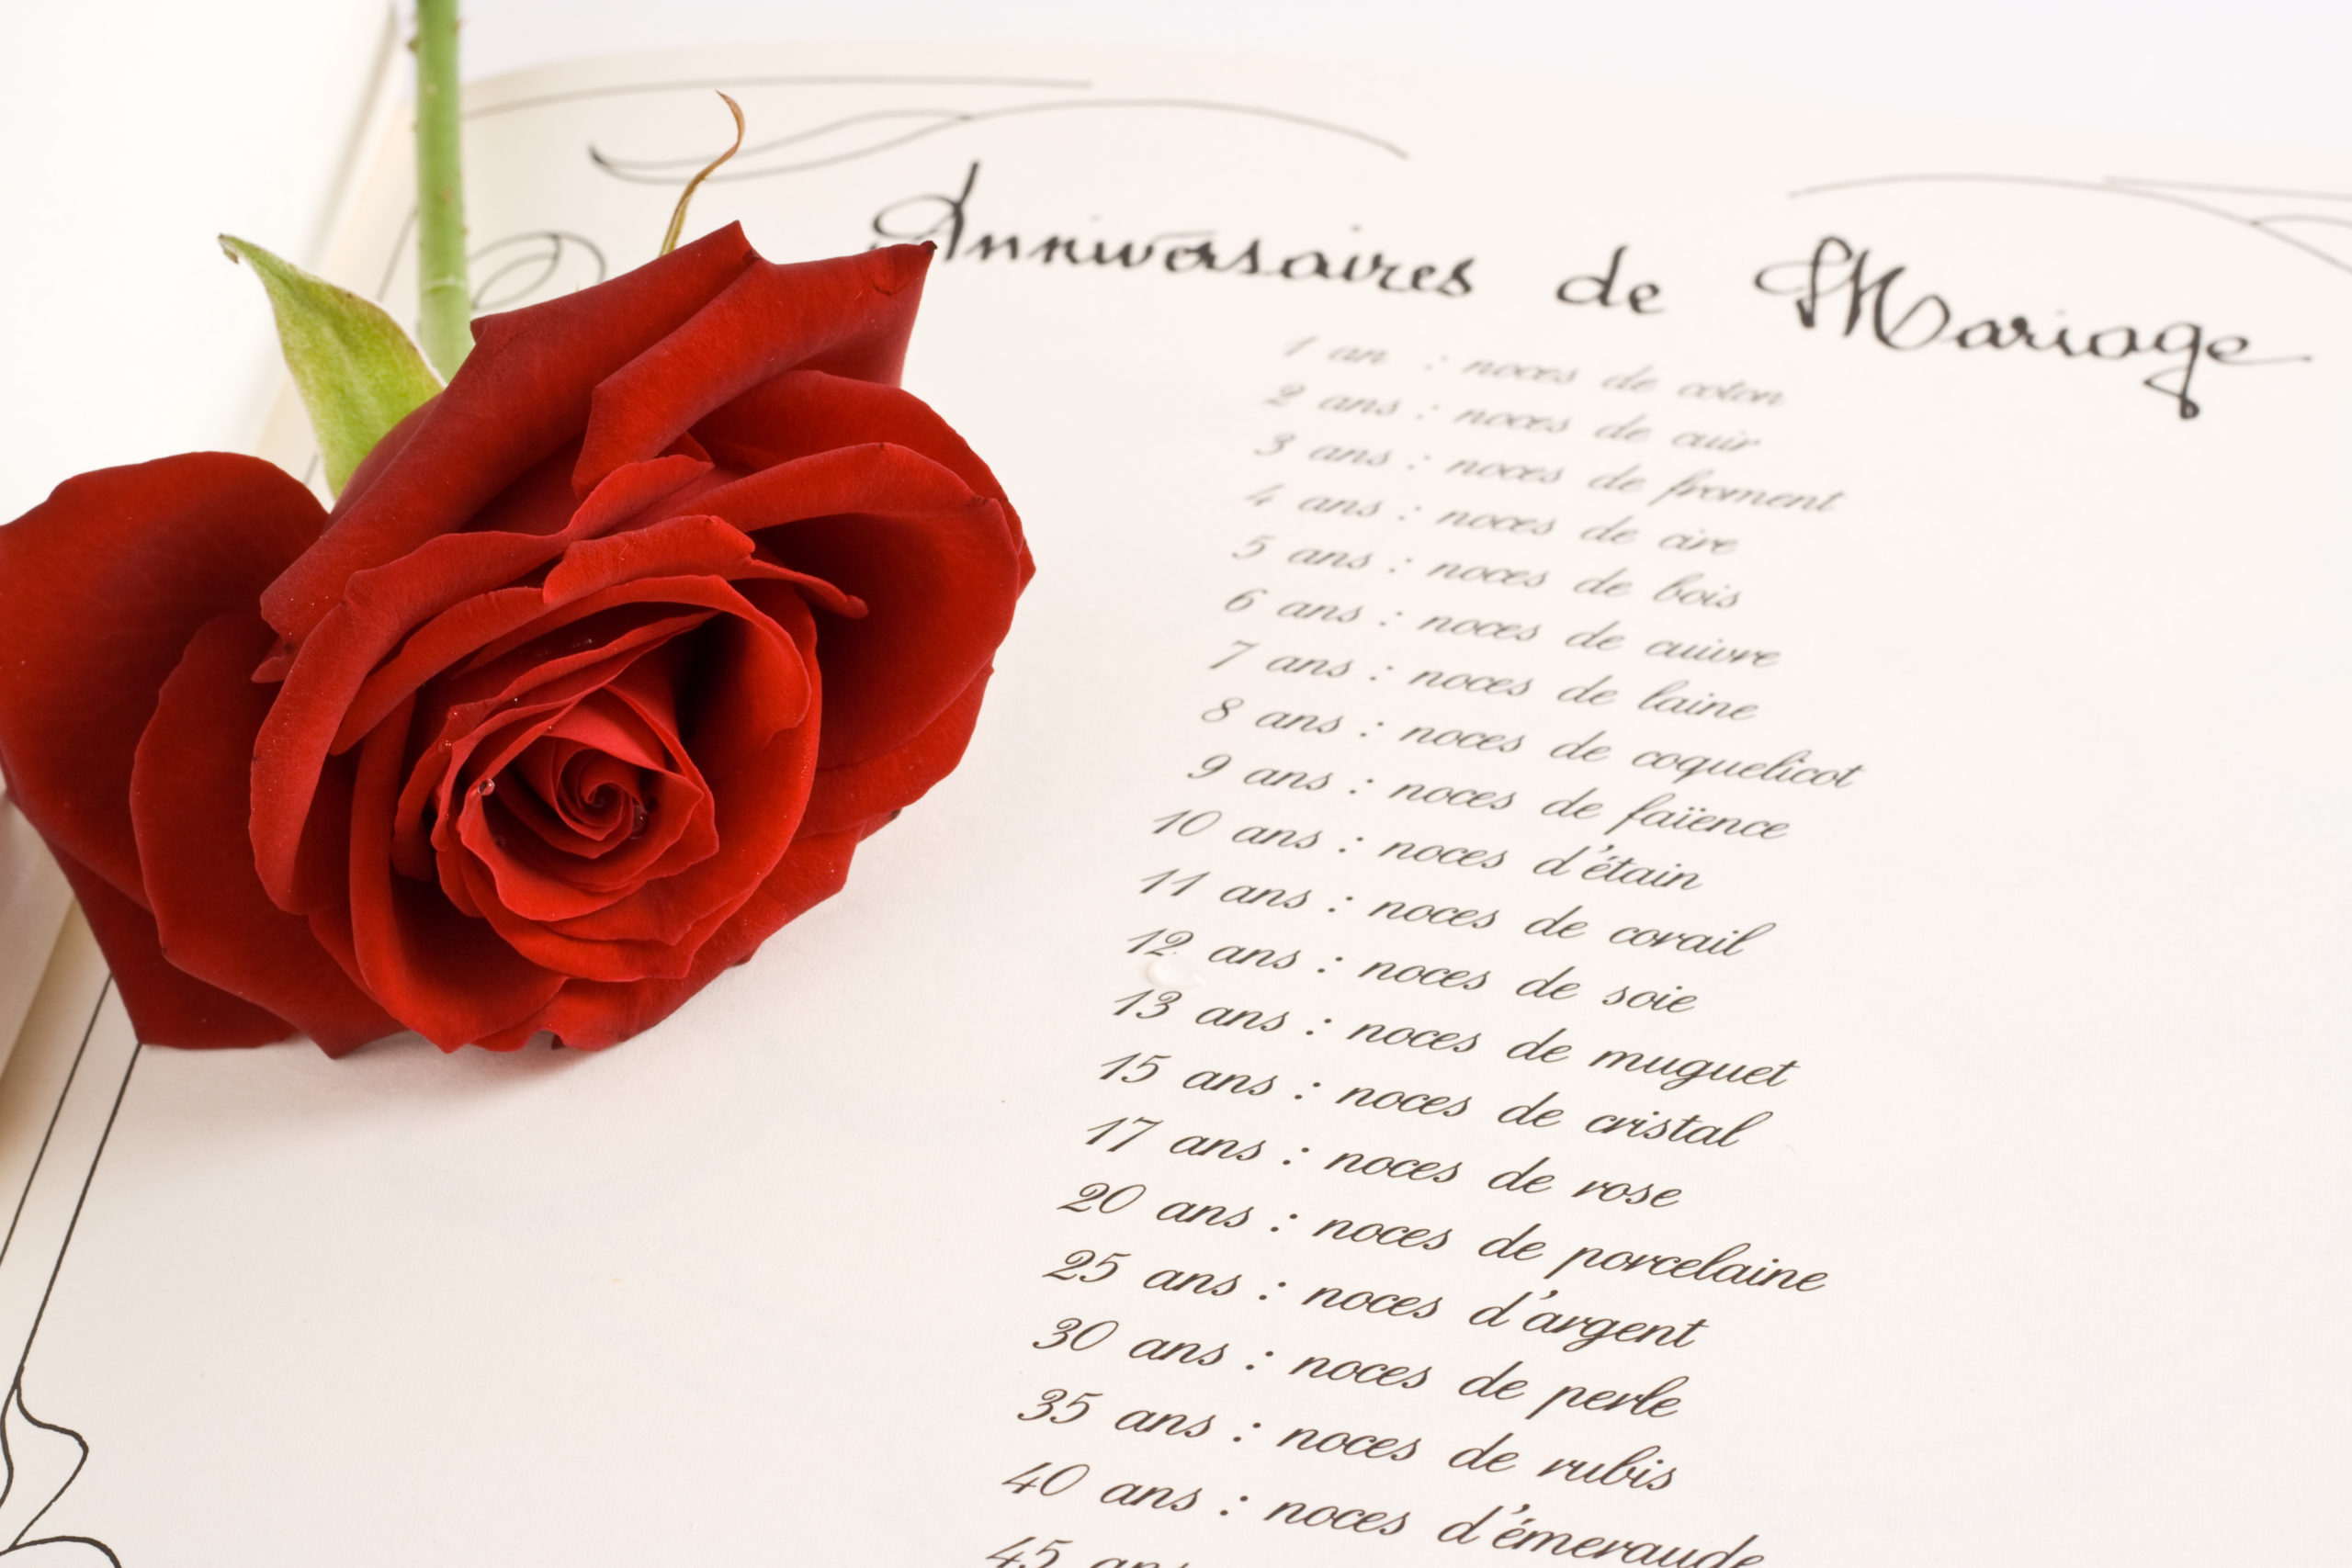 Anniversaires de Mariage
1 an : noces de coton
2 ans : noces de cuir
3 ans : noces de froment
4 ans : noces de cire
5 ans : noces de bois
6 ans : noces de cuivre
7 ans : noces de laine
8 ans : noces de coquelicot
9 ans : noces de faïence
10 ans : noces d'étain
11 ans : noces de corail
12 ans : noces de soie
13 ans : noces de muguet
15 ans : noces de cristal
17 ans : noces de rose
20 ans : noces de porcelaine
25 ans : noces d'argent
30 ans : noces de perle
35 ans : noces de rubis
40 ans : noces d'émeraude
45 ans